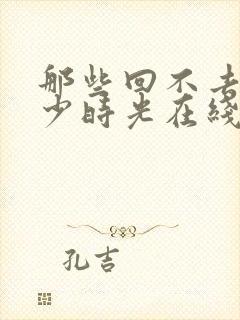 那些回不去
少时光在线
孔吉